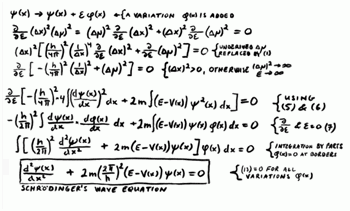 ψ(x) → ψ(x) + εφ(x) ←{A VARIATION φ(x) IS ADDED
∂/∂ε (Δx)²(Δp)² = (Δp)² ∂/∂ε (Δx)² + (Δx)² ∂/∂ε (Δp)² = 0
(Δx)² [(h/4π)² (1/Δx)⁴ ∂/∂ε (Δx)² + ∂/∂ε (Δp)²] = 0 {UNDERLINED Δp REPLACED BY (1)
∂/∂ε [-(h/4π)² (1/Δx)² + (Δp)²] = 0 {(Δx)² > 0, OTHERWISE (Δp)² → ∞ E → ∞
∂/∂ε [-(h/4π)² · 4 ∫(dψ(x)/dx)² dx + 2m ∫(E-V(x)) ψ²(x) dx] = 0 {USING (5) & (6)
-(h/2π)² ∫ dψ(x)/dx · dφ(x)/dx dx + 2m ∫(E-V(x)) ψ(x) φ(x) dx = 0 {∂/∂ε & ε=0 (7)
∫[(h/2π)² d²ψ(x)/dx² + 2m (E-V(x)) ψ(x)] φ(x) dx = 0 {INTEGRATION BY PARTS φ(x)=0 AT BORDERS
d²ψ(x)/dx² + 2m (2π/h)² (E-V(x)) ψ(x) = 0 {(12)=0 FOR ALL VARIATIONS φ(x)
SCHRÖDINGER'S WAVE EQUATION